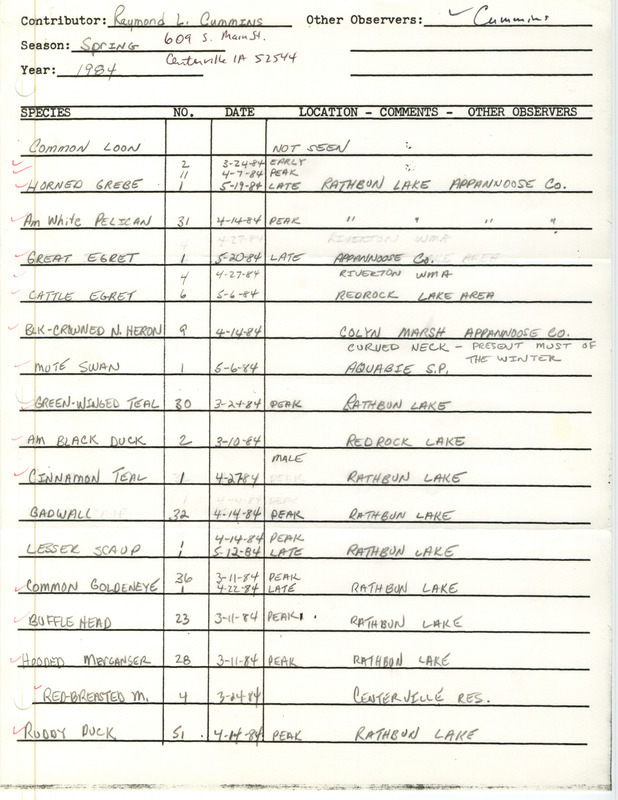 Contributor: Raymond L. Cummins Other Observers: Cummins
Season: Spring 609 S. Main St.
Centerville IA 52544
Year: 1984
SPECIES NO. DATE LOCATION - COMMENTS - OTHER OBSERVERS
COMMON LOON NOT SEEN
2 3-24-84 EARLY
11 4-7-84 PEAK
HORNED GREBE 1 5-19-84 LATE RATHBUN LAKE APPANNOOSE CO.
Am White PELICAN 31 4-14-84 PEAK " " " "
GREAT EGRET 1 5-20-84 LATE APPANNOOSE CO.
4 4-27-84 RIVERTON WMA
CATTLE EGRET 6 5-6-84 REDROCK LAKE AREA
BLK-CROWNED N. HERON 9 4-14-84 COLYN MARSH APPANNOOSE CO.
CURVED NECK - PRESENT MUST OF
THE WINTER
MUTE SWAN 1 5-6-84 AQUABIE S.P.
GREEN-WINGED TEAL 30 3-24-84 PEAK RATHBUN LAKE
AM BLACK DUCK 2 3-10-84 REDROCK LAKE
MALE
CINNAMON TEAL 1 4-27-84 RATHBUN LAKE
GADWALL 32 4-14-84 PEAK RATHBUN LAKE
1 4-14-84 PEAK
LESSER SCAUP 1 5-12-84 LATE RATHBUN LAKE
36 3-11-84 PEAK
COMMON GOLDENEYE 1 4-22-84 LATE RATHBUN LAKE
BUFFLEHEAD 23 3-11-84 PEAK. RATHBUN LAKE
HOODED MERGANSER 28 3-11-84 PEAK RATHBUN LAKE
RED-BREASTED M. 4 3-24-84 CENTERVILLE RES.
RUDDY DUCK 51 4-14-84 PEAK RATHBUN LAKE